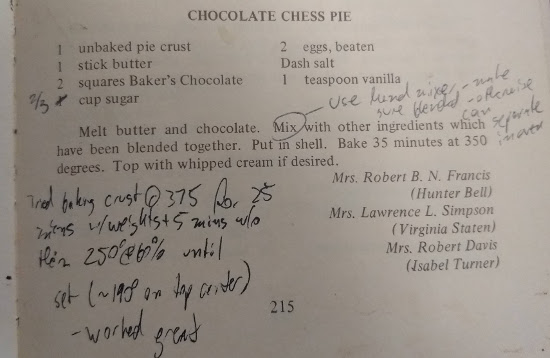 CHOCOLATE CHESS PIE
1 unbaked pie crust
1 stick butter
2 squares Baker's Chocolate
2/3 cup sugar
2 eggs, beaten
Dash salt
1 teaspoon vanilla
use hand mixer - make
sure blended - otherwise
can separate
in oven
Melt butter and chocolate. Mix with other ingredients which
have been blended together. Put in shell. Bake 35 minutes at 350
degrees. Top with whipped cream if desired.
Mrs. Robert B. N. Francis
(Hunter Bell)
Mrs. Lawrence L. Simpson
(Virginia Staten)
Mrs. Robert Davis
(Isabel Turner)
Tried baking crust @ 375 for 25
mins w/weights + 5 mins w/o
then 250° @ 60% until
set (~198 on top center)
- worked great
215